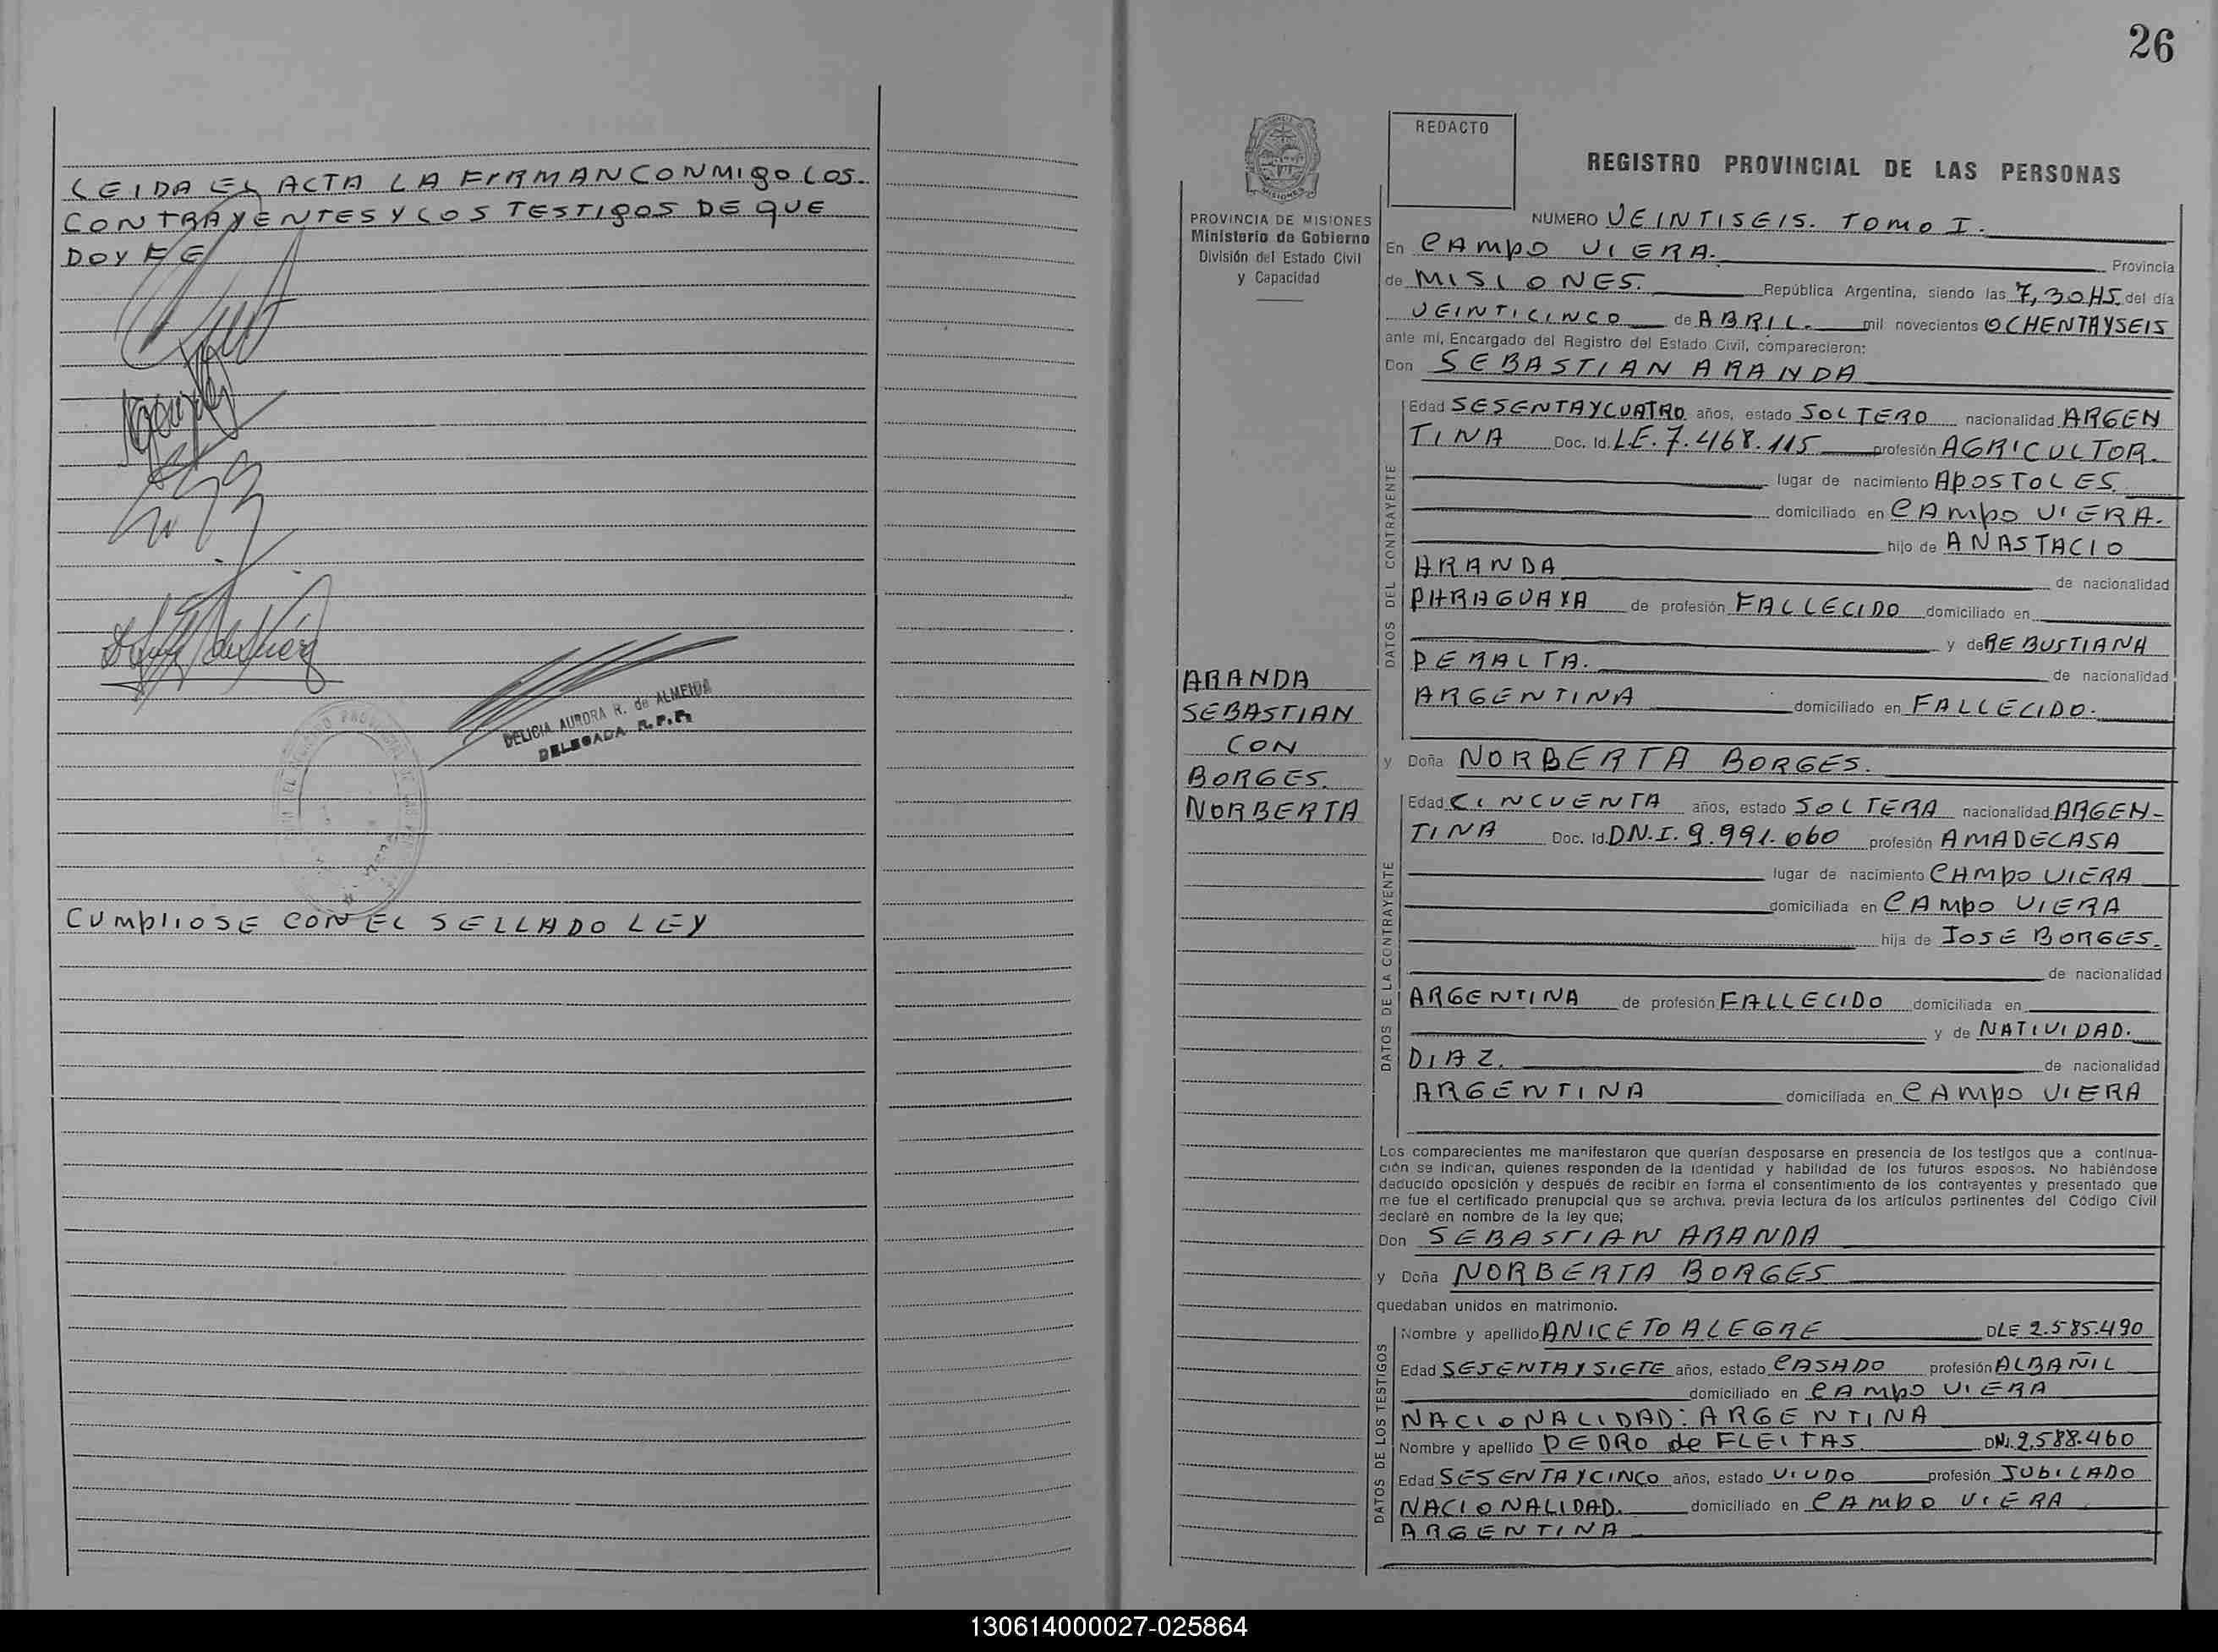 LEIDA EL ACTA LA FIRMAN CONMIGO LOS
CONTRAYENTES Y LOS TESTIGOS DE QUE
DOY FE
DELICIA AURORA R. de ALMEIDA
DELEGADA R.P.P.
CUMPLIOSE CON EL SELLADO LEY
26
REDACTO
MISIONES
PROVINCIA DE MISIONES
Ministerio de Gobierno
División del Estado Civil
y Capacidad
ARANDA
SEBASTIAN
CON
BORGES.
NORBERTA
REGISTRO PROVINCIAL DE LAS PERSONAS
NUMERO VEINTISEIS. TOMO I.
En CAMPO VIERA. Provincia
de MISIONES. República Argentina, siendo las 7,30 HS. del día
VEINTICINCO de ABRIL. mil novecientos OCHENTAYSEIS
ante mí, Encargado del Registro del Estado Civil, comparecieron:
Don SEBASTIAN ARANDA
DATOS DEL CONTRAYENTE
Edad SESENTAYCUATRO años, estado SOLTERO nacionalidad ARGEN
TINA Doc. Id. LE. 7.468.115 profesión AGRICULTOR.
lugar de nacimiento APOSTOLES.
domiciliado en CAMPO VIERA.
hijo de ANASTACIO
ARANDA de nacionalidad
PARAGUAYA de profesión FALLECIDO domiciliado en
y de REBUSTIANA
PERALTA. de nacionalidad
ARGENTINA domiciliado en FALLECIDO.
y Doña NORBERTA BORGES.
DATOS DE LA CONTRAYENTE
Edad CINCUENTA años, estado SOLTERA nacionalidad ARGEN-
TINA Doc. Id. DN.I. 9.991.060 profesión AMADECASA
lugar de nacimiento CAMPO VIERA
domiciliada en CAMPO VIERA
hija de JOSÉ BORGES.
de nacionalidad
ARGENTINA de profesión FALLECIDO domiciliada en
y de NATIVIDAD.
DIAZ. de nacionalidad
ARGENTINA domiciliada en CAMPO VIERA
Los comparecientes me manifestaron que querían desposarse en presencia de los testigos que a continua-
ción se indican, quienes responden de la identidad y habilidad de los futuros esposos. No habiéndose
deducido oposición y después de recibir en forma el consentimiento de los contrayentes y presentado que
me fue el certificado prenupcial que se archiva, previa lectura de los artículos pertinentes del Código Civil
declaré en nombre de la ley que;
Don SEBASTIAN ARANDA
y Doña NORBERTA BORGES
quedaban unidos en matrimonio.
DATOS DE LOS TESTIGOS
Nombre y apellido ANICETO ALEGRE DLE 2.585.490
Edad SESENTAYSIETE años, estado CASADO profesión ALBAÑIL
domiciliado en CAMPO VIERA
NACIONALIDAD: ARGENTINA
Nombre y apellido PEDRO de FLEITAS. DNI. 2.588.460
Edad SESENTAYCINCO años, estado VIUDO profesión JUBILADO
NACIONALIDAD. domiciliado en CAMPO VIERA
ARGENTINA
130614000027-025864